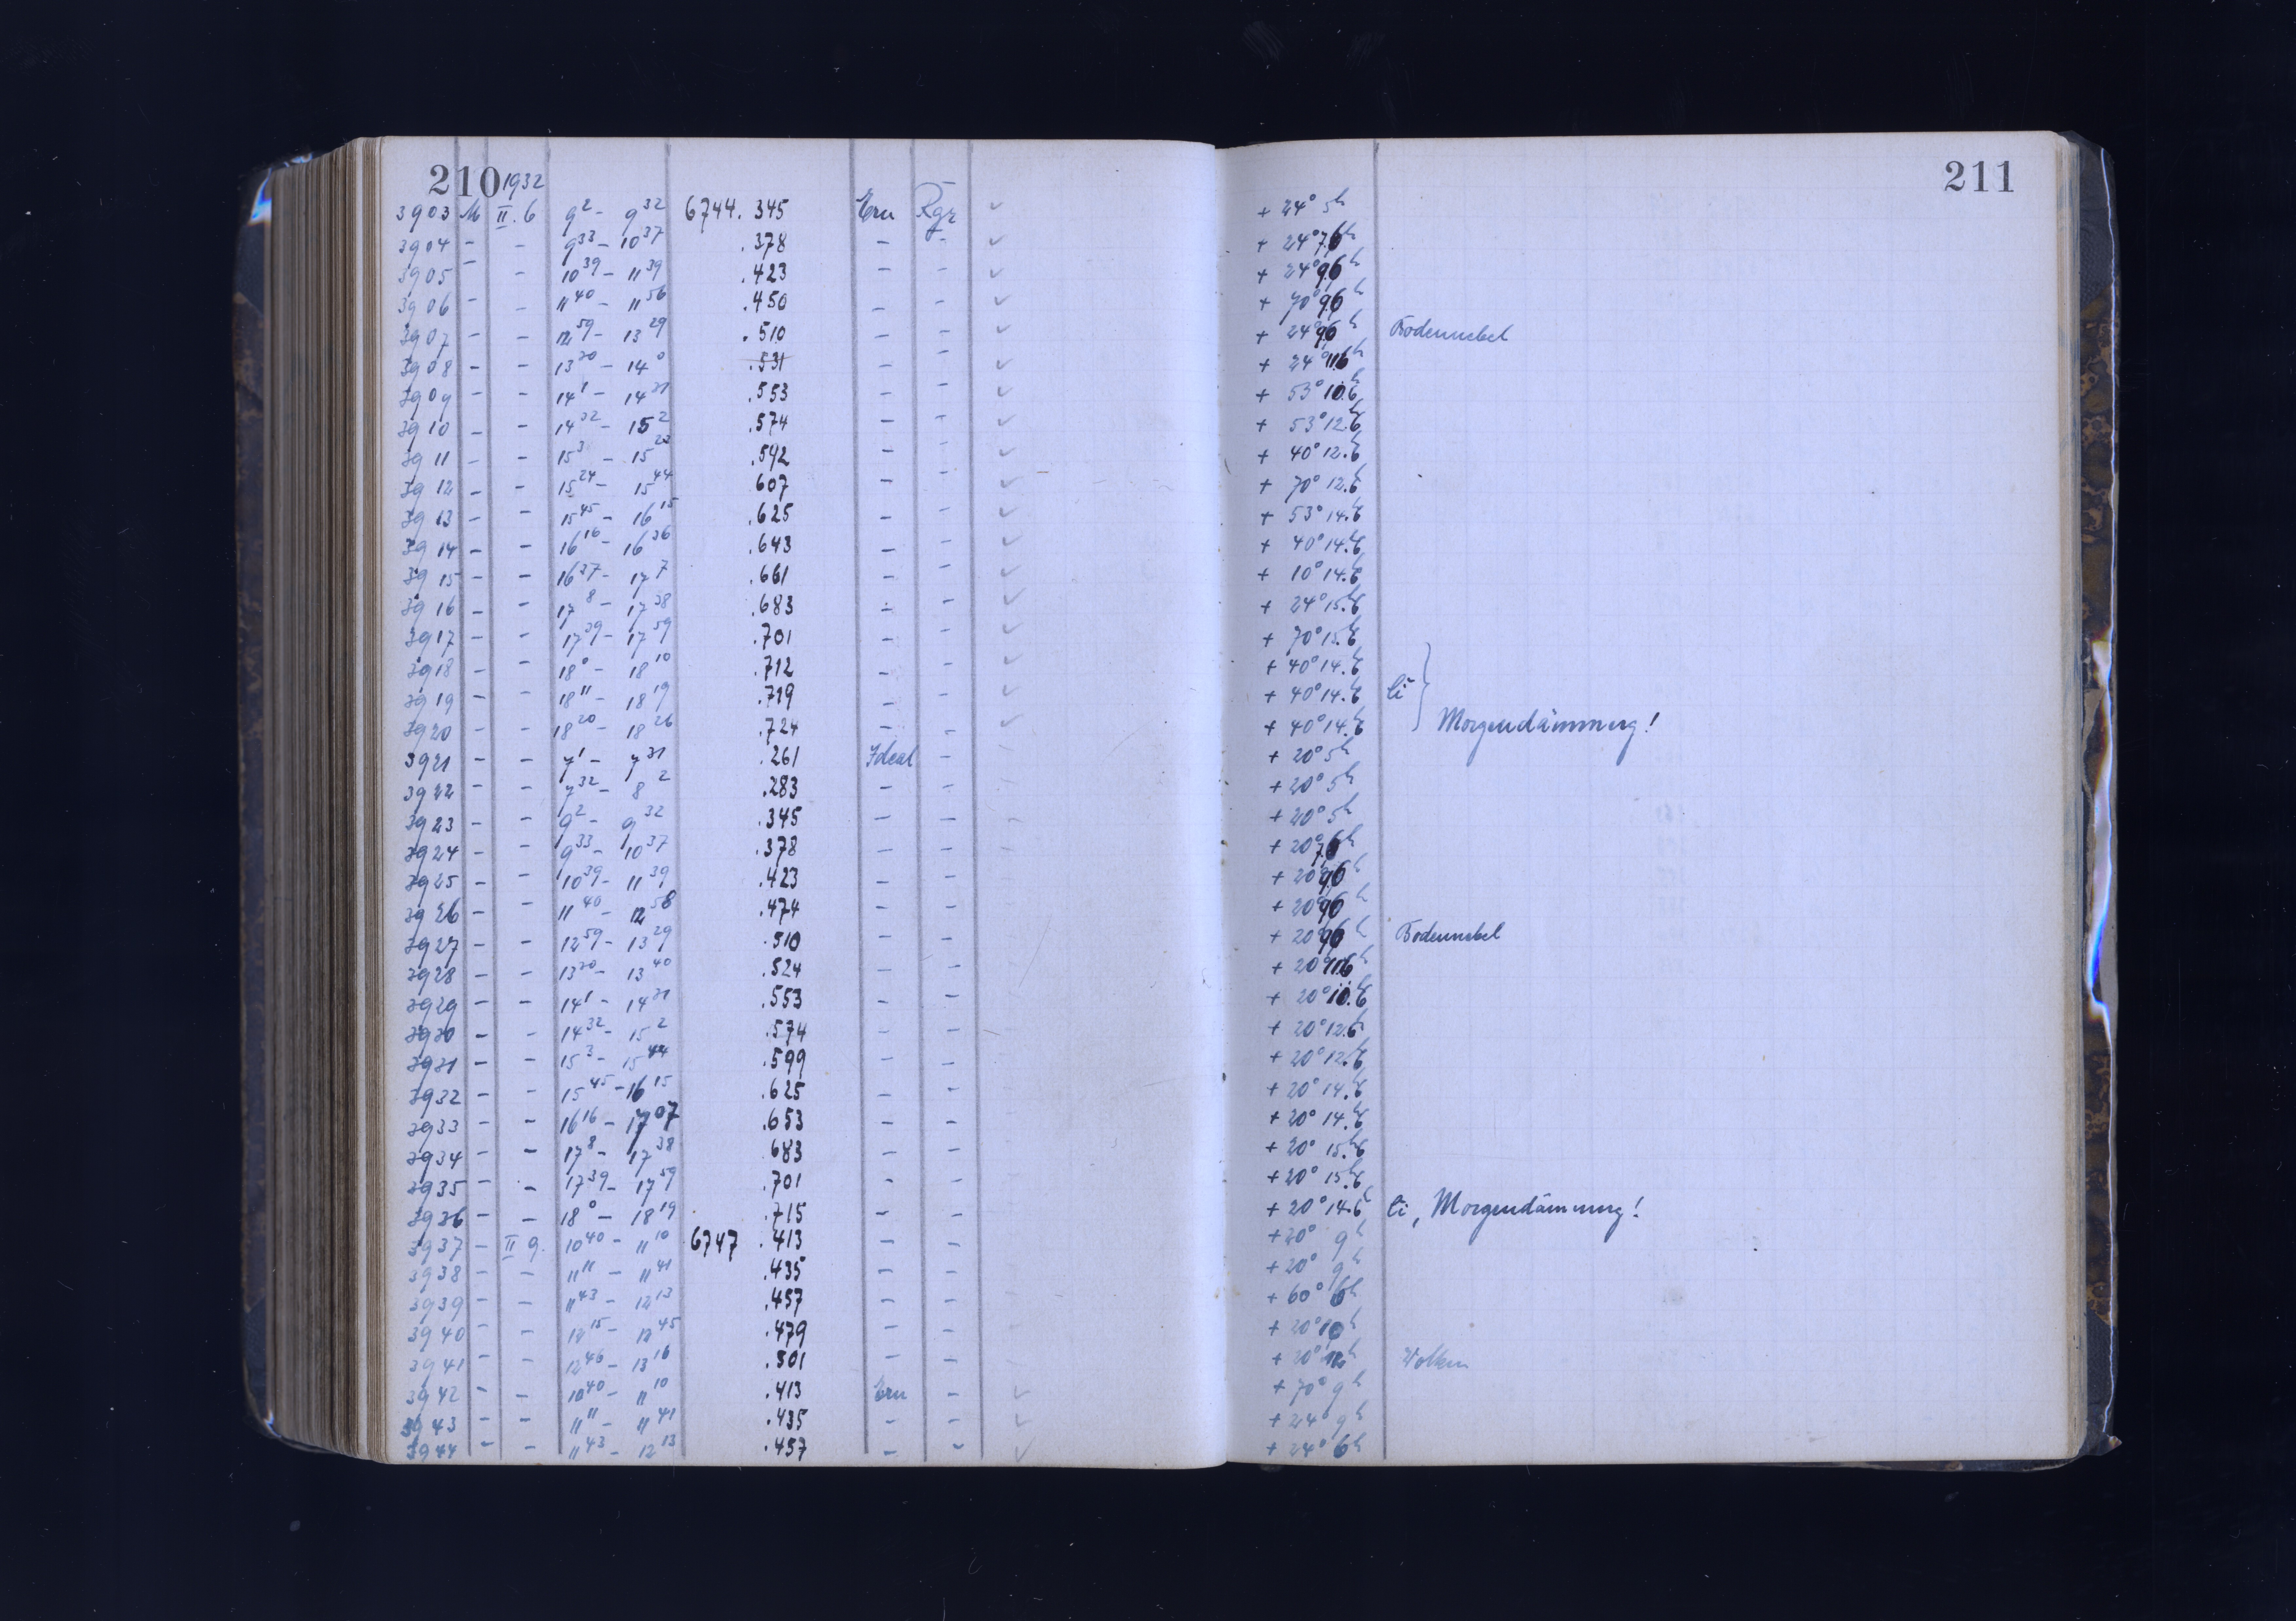 210 1932 211
3903 M II.6 9 2 - 9 32 6744. 345 Ern Rgr ✓ + 24° 5h
3904 - - 9 33 - 10 37 .378 - - ✓ + 24° 7.6h
3905 - - 10 39 - 11 39 .423 - - ✓ + 24° 9.6h
3906 - - 11 40 - 11 56 .450 - - ✓ + 70° 9.6h
3907 - - 12 59 - 13 29 .510 - - ✓ + 24° 9.6h Bodennebel
3908 - - 13 30 - 14 0 .531 - - ✓ + 24° 11.6h
3909 - - 14 1 - 14 31 .553 - - ✓ + 53° 10.6h
3910 - - 14 32 - 15 2 .574 - - ✓ + 53° 12.6h
3911 - - 15 3 - 15 23 .592 - - ✓ + 40° 12.6h
3912 - - 15 24 - 15 44 607 - - ✓ + 70° 12.6h
3913 - - 15 45 - 16 15 .625 - - ✓ + 53° 14.6h
3914 - - 16 16 - 16 36 .643 - - ✓ + 40° 14.6h
3915 - - 16 37 - 17 7 .661 - - ✓ + 10° 14.6h
3916 - - 17 8 - 17 38 .683 - - ✓ + 24° 15.6h
3917 - - 17 39 - 17 59 .701 - - ✓ + 70° 15.6h
3918 - - 18 0 - 18 10 .712 - - ✓ + 40° 14.6h
3919 - - 18 11 - 18 19 .719 - - ✓ + 40° 14.6h Ci
3920 - - 18 20 - 18 26 .724 - - ✓ + 40° 14.6h Morgendämmerg!
3921 - - 7 1 - 7 31 .261 Ideal - + 20° 5h
3922 - - 7 32 - 8 2 .283 - - + 20° 5h
3923 - - 9 2 - 9 32 .345 - - + 20° 5h
3924 - - 9 33 - 10 37 .378 - - + 20° 7.6h
3925 - - 10 39 - 11 39 .423 - - + 20° 9.6h
3926 - - 11 40 - 12 58 .474 - - + 20° 9.6h
3927 - - 12 59 - 13 29 .510 - - + 20° 9.6h Bodennebel
3928 - - 13 30 - 13 40 .524 - - + 20° 11.6h
3929 - - 14 1 - 14 31 .553 - - + 20° 10.6h
3930 - - 14 32 - 15 2 .574 - - + 20° 12.6h
3931 - - 15 3 - 15 44 .599 - - + 20° 12.6h
3932 - - 15 45 - 16 15 .625 - - + 20° 14.6h
3933 - - 16 16 - 17 07 .653 - - + 20° 14.6h
3934 - - 17 8 - 17 38 683 - - + 20° 15.6h
3935 - - 17 39 - 17 59 .701 - - + 20° 15.6h
3936 - - 18 0 - 18 19 .715 - - + 20° 14.6h Ci, Morgendämmerg!
3937 - II 9. 10 40 - 11 10 6747 .413 - - + 20° 9h
3938 - - 11 11 - 11 41 .435 - - + 20° 9h
3939 - - 11 43 - 12 13 .457 - - + 60° 6h
3940 - - 12 15 - 12 45 .479 - - + 20° 10h
3941 - - 12 46 - 13 16 .501 - - + 20° 12h Wolken
3942 - - 10 40 - 11 10 .413 Ern - ✓ + 70° 9h
3943 - - 11 11 - 11 41 .435 - - ✓ + 24° 9h
3944 - - 11 43 - 12 13 .457 - - ✓ + 24° 6h